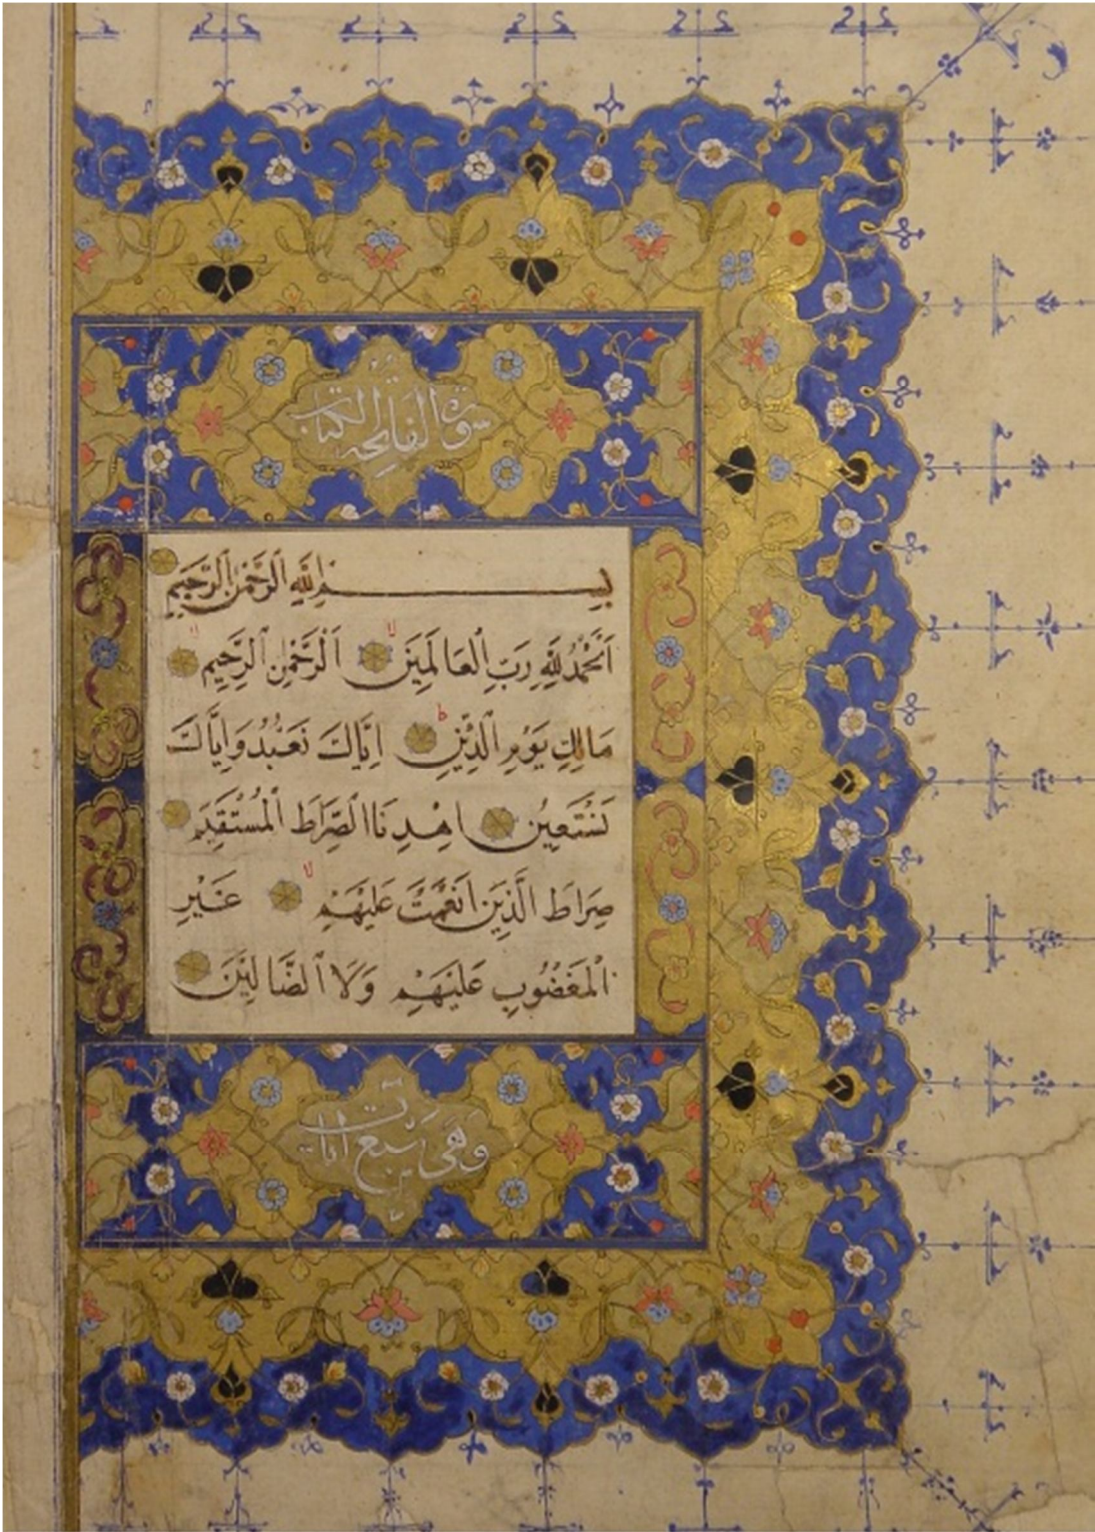 سورة الفاتحة الكتاب
بِسْمِ اللّٰهِ الرَّحْمٰنِ الرَّحِيمِ
اَلْحَمْدُ لِلّٰهِ رَبِّ الْعَالَمِينَ لا اَلرَّحْمٰنِ الرَّحِيمِ لا
مَالِكِ يَوْمِ الدِّينِ ط اِيَّاكَ نَعْبُدُ وَاِيَّاكَ
نَسْتَعِينُ اِهْدِنَا الصِّرَاطَ الْمُسْتَقِيمَ
صِرَاطَ الَّذِينَ اَنْعَمْتَ عَلَيْهِمْ لا غَيْرِ
الْمَغْضُوبِ عَلَيْهِمْ وَلَا الضَّالِّينَ
وهي سبع ايات